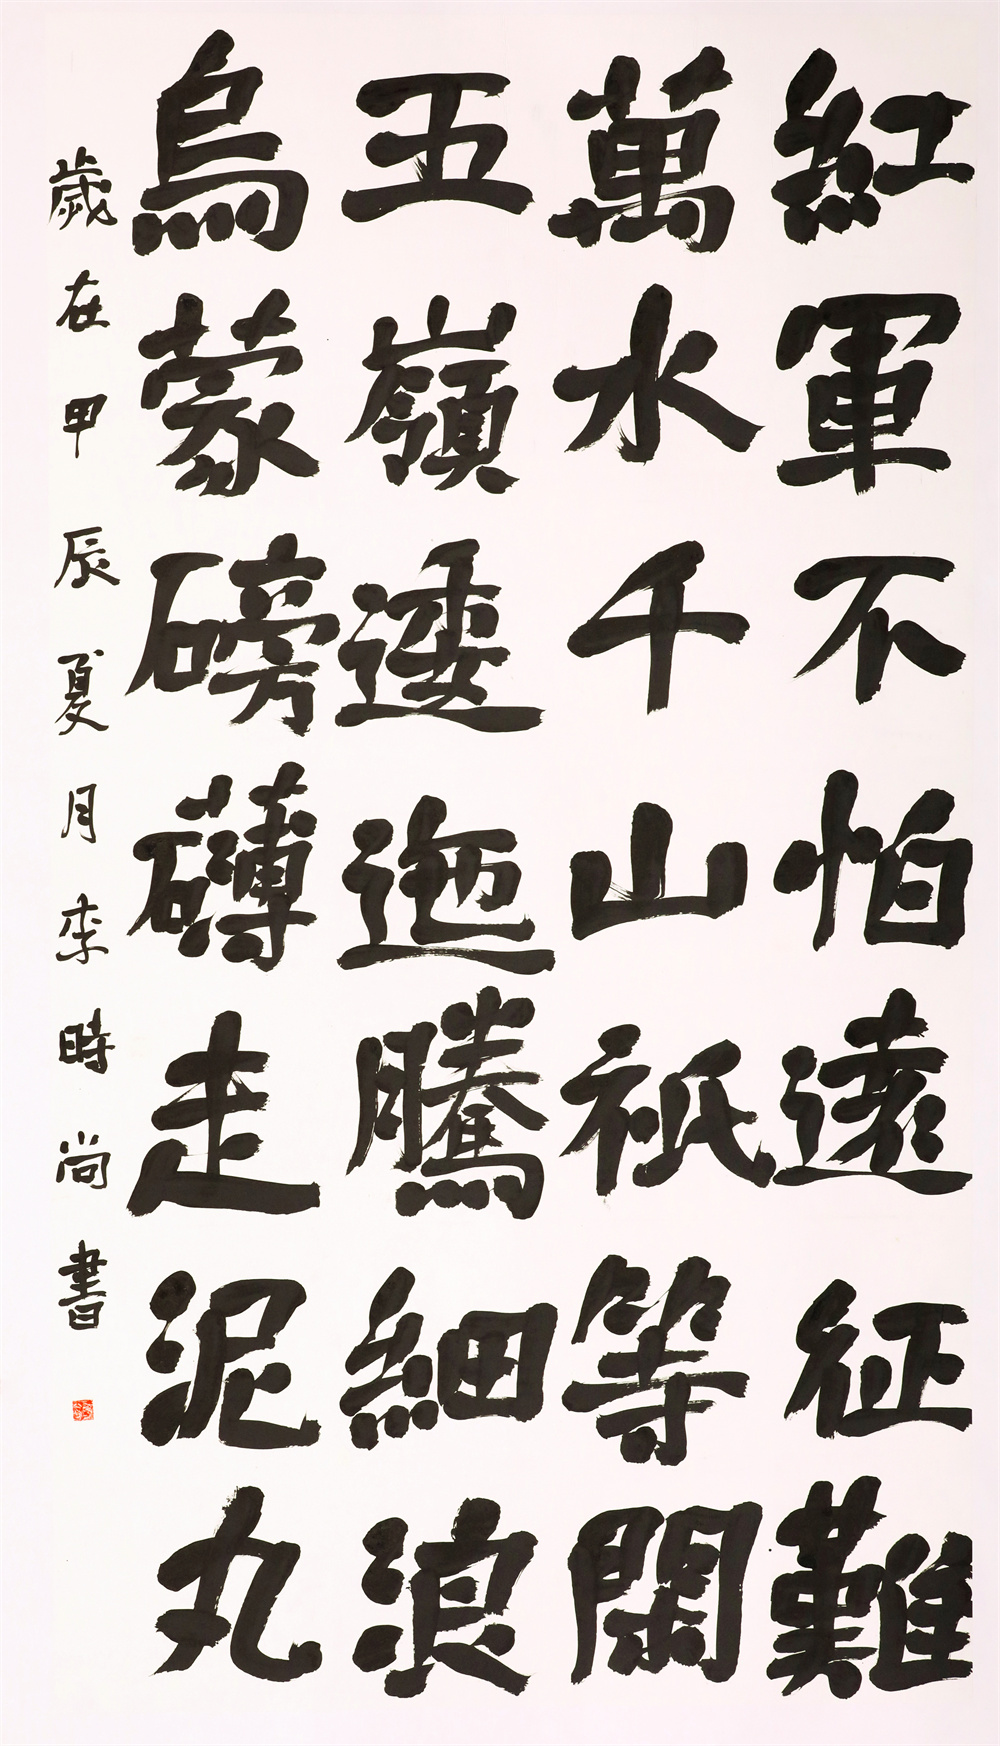 紅軍不怕遠征難
萬水千山祇等閑
五嶺逶迤騰細浪
烏蒙磅礴走泥丸
歲在甲辰夏月李時尚書